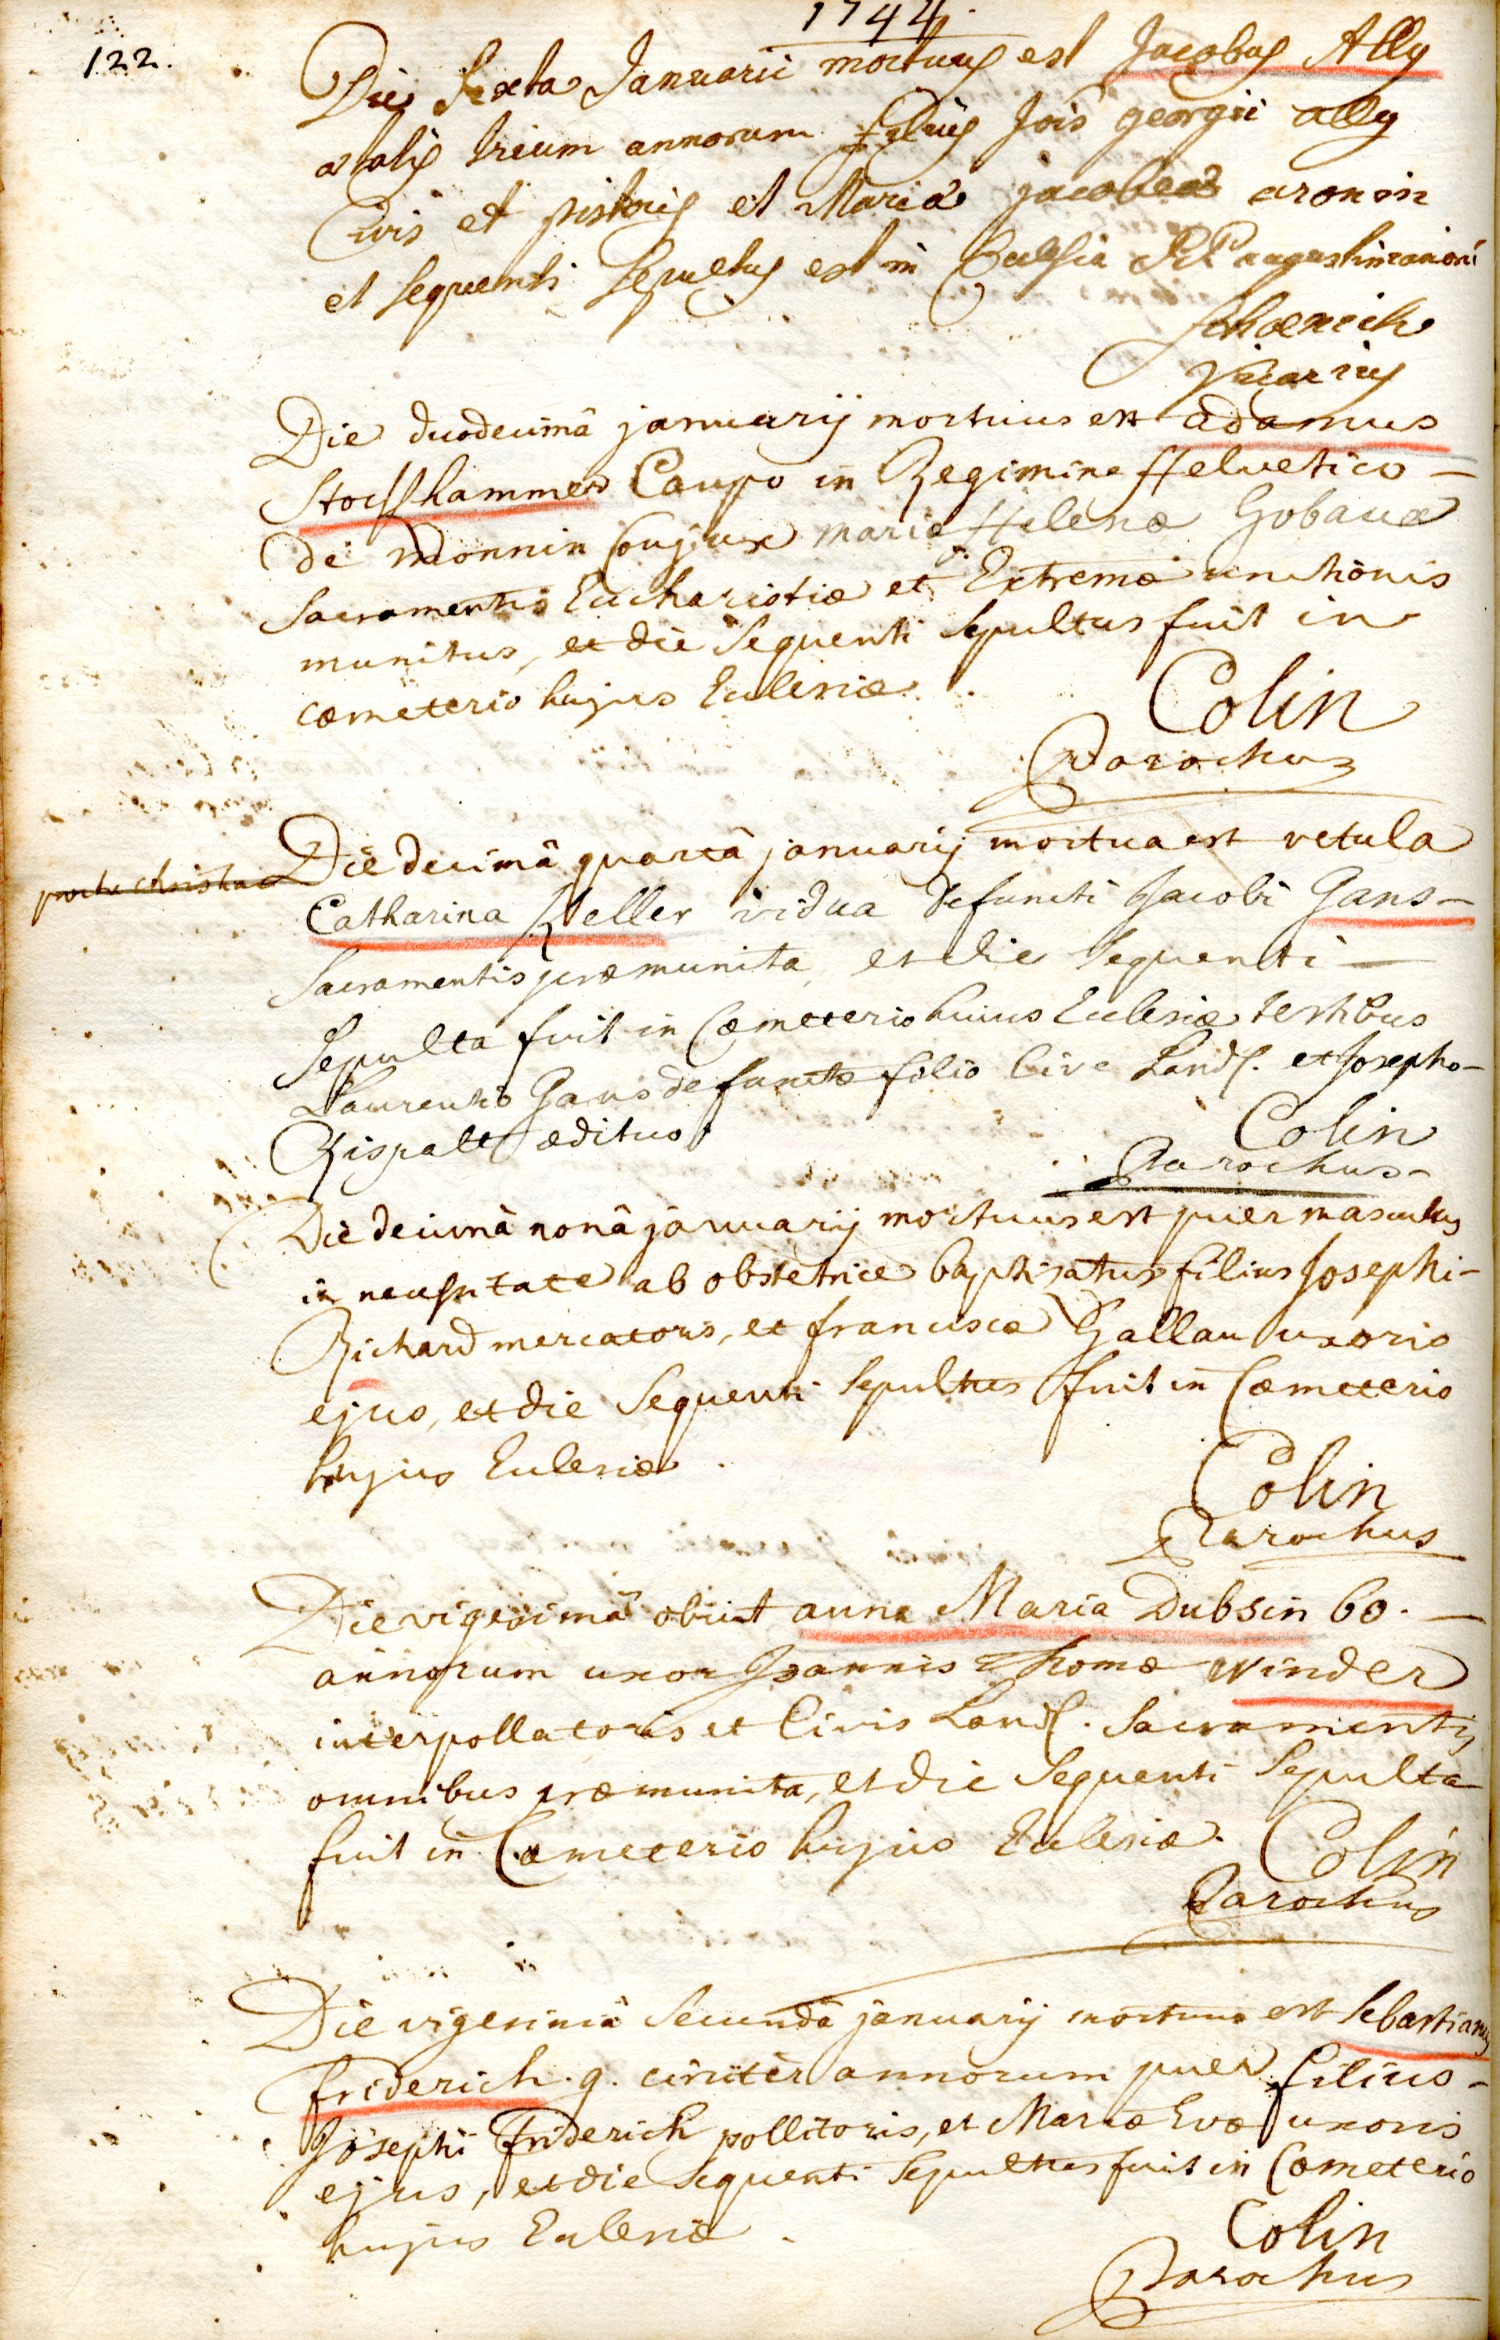 1744.
122.
Die Sexta Januarii mortuus est Jacobus Ally
ætatis trium annorum filius Jois georgii ally
Civis et pistoris et Maria jacobea aronin
et sequenti sepultus est in Ecclesia PP augustinianorū
Vicarius
Die duodecimâ januarij mortuus est adamus
Caupo in Regimine Helvetico -
de Monnin Conjux mariæ Helenæ Gobauæ
Sacramentis Eucharistiæ et Extremæ unctionis
munitus, et die sequenti sepultus fuit in
cœmeterio hujus Ecclesiæ.
Colin
Parochus
Die decimâ quartâ januarij mortua est vetula
Catharina Keller vidua defuncti Jacobi Gans -
Sacramentis præmunita, et die sequenti -
Sepulta fuit in Cœmeterio huius Ecclesiæ testibus
Laurentio Gans defunctæ filio Cive Land. et Josepho -
Rispalt ædituo.
Colin
Parochus -
Die decimâ nonâ januarij mortuus est puer masculus
in necessitate ab obstetrice baptisatus filius Josephi -
Richard mercatoris, et franciscæ Gallau uxoris
ejus, et die sequenti sepultus fuit in Cœmeterio
hujus Ecclesiæ.
Colin
Parochus
Die vigesimâ obiit anna Maria Dubsin 60. -
annorum uxor Joannis Thomæ winder
interpollatoris et Civis Land. Sacramentis
omnibus præmunita, et die sequenti sepulta
fuit in Cœmeterio hujus Ecclesiæ.
Colin
Parochus
Die vigesimâ secundâ januarij mortuus est Sebastianus
friderich. 9. circiter annorum puer filius -
Josephi friderich pollitoris, et Mariæ Evæ uxoris
ejus, et die sequenti sepultus fuit in Cœmeterio
hujus Ecclesiæ.
Colin
Parochus